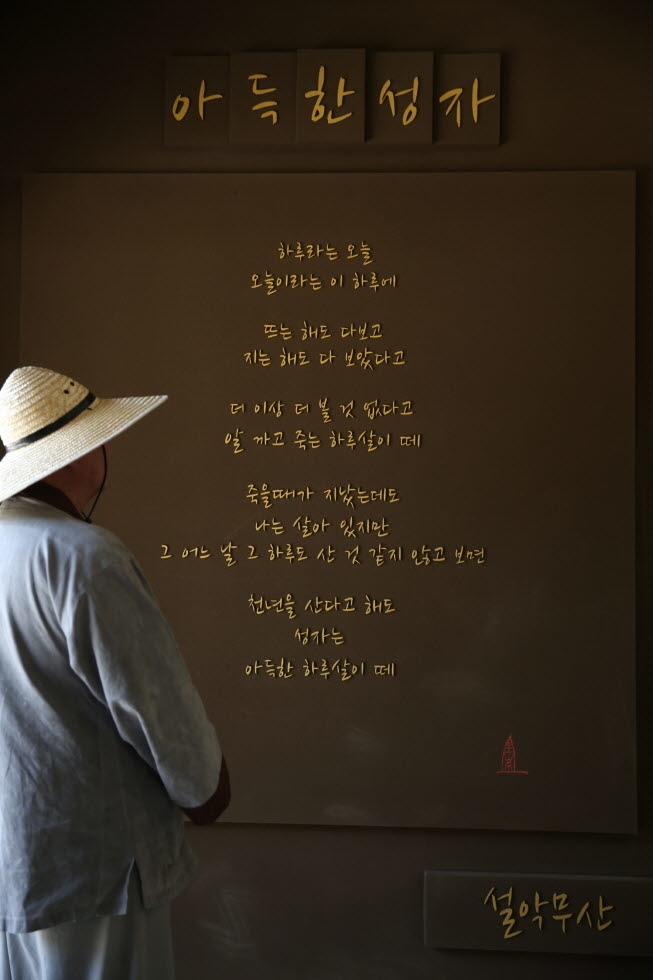 아득한성자
하루라는 오늘
오늘이라는 이 하루에
뜨는 해도 다보고
지는 해도 다 보았다고
더 이상 더 볼 것 없다고
알 까고 죽는 하루살이 떼
죽을때가 지났는데도
나는 살아 있지만
그 어느 날 그 하루도 산 것 같지 않고 보면
천년을 산다고 해도
성자는
아득한 하루살이 떼
설악무산